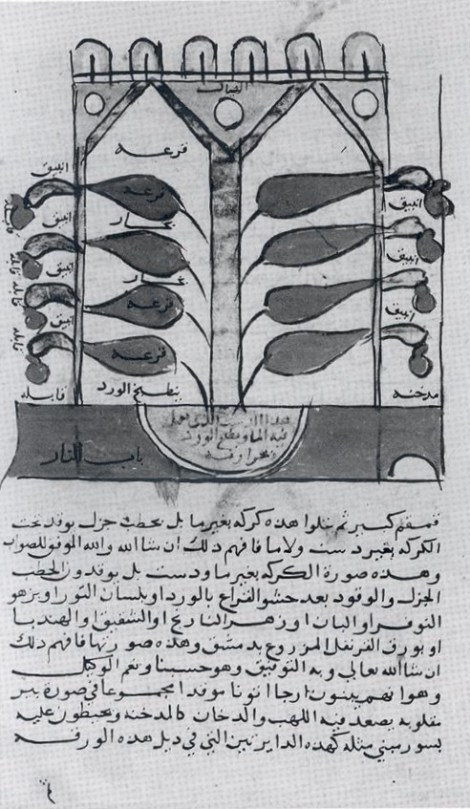 قرعه
انبيق
قرعه
انبيق
انبيق
انبيق
بخار
انبيق
قابله
انبيق
بخار
انبيق
قابله
قرعه
انبيق
قابله
قرعه
قابله
يطبخ الورد
مدخنه
هذا الدست الذي يعمل
فيه الماء ويطبخ الورد
باب النار
قمقم كبير ثم يتلوا هذه كركه بغير ما بل بحطب جزل يوقد تحت
الكركه بغير دست ولا ما فافهم ذلك ان شا الله والله الموفق للصواب
وهذه صورة الكركه بغير ما ودست بل يوقدون الحطب
الجزل والوقود بعد حشو القراع بالورد او بلسان الثور او بزهر
النوفر او البان او زهر النارنج او الشقيق او الهندبا
او بورق القرنفل المزروع بدمشق وهذه صورتها فافهم ذلك
ان شا الله تعالى وبه التوفيق وهو حسبنا ونعم الوكيل
وهو انهم يبنون ارجا اتونا موقدا مجموعا في صورة بير
مقلوبه يصعد فيه اللهب والدخان كالمدخنه ويحيطون عليه
بسور مبني مثله كهذه الدايرتين التي في ذيل هذه الورقه